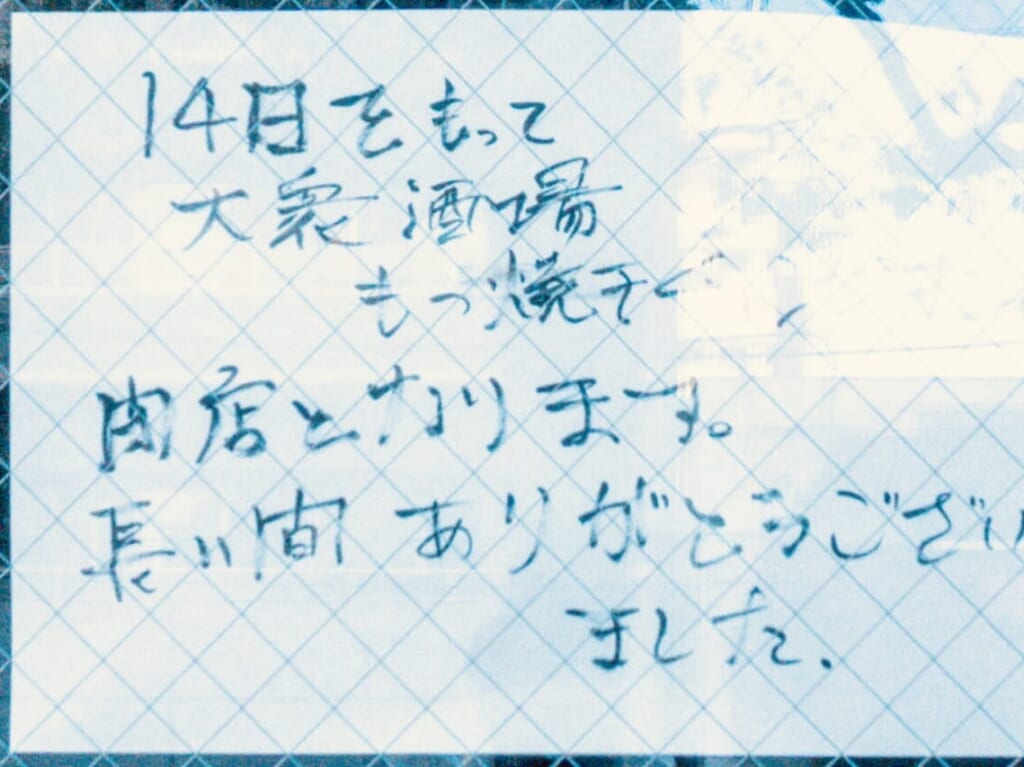 14日をもって
大衆酒場
もつ焼チ
閉店となります。
長い間ありがとうござい
ました.